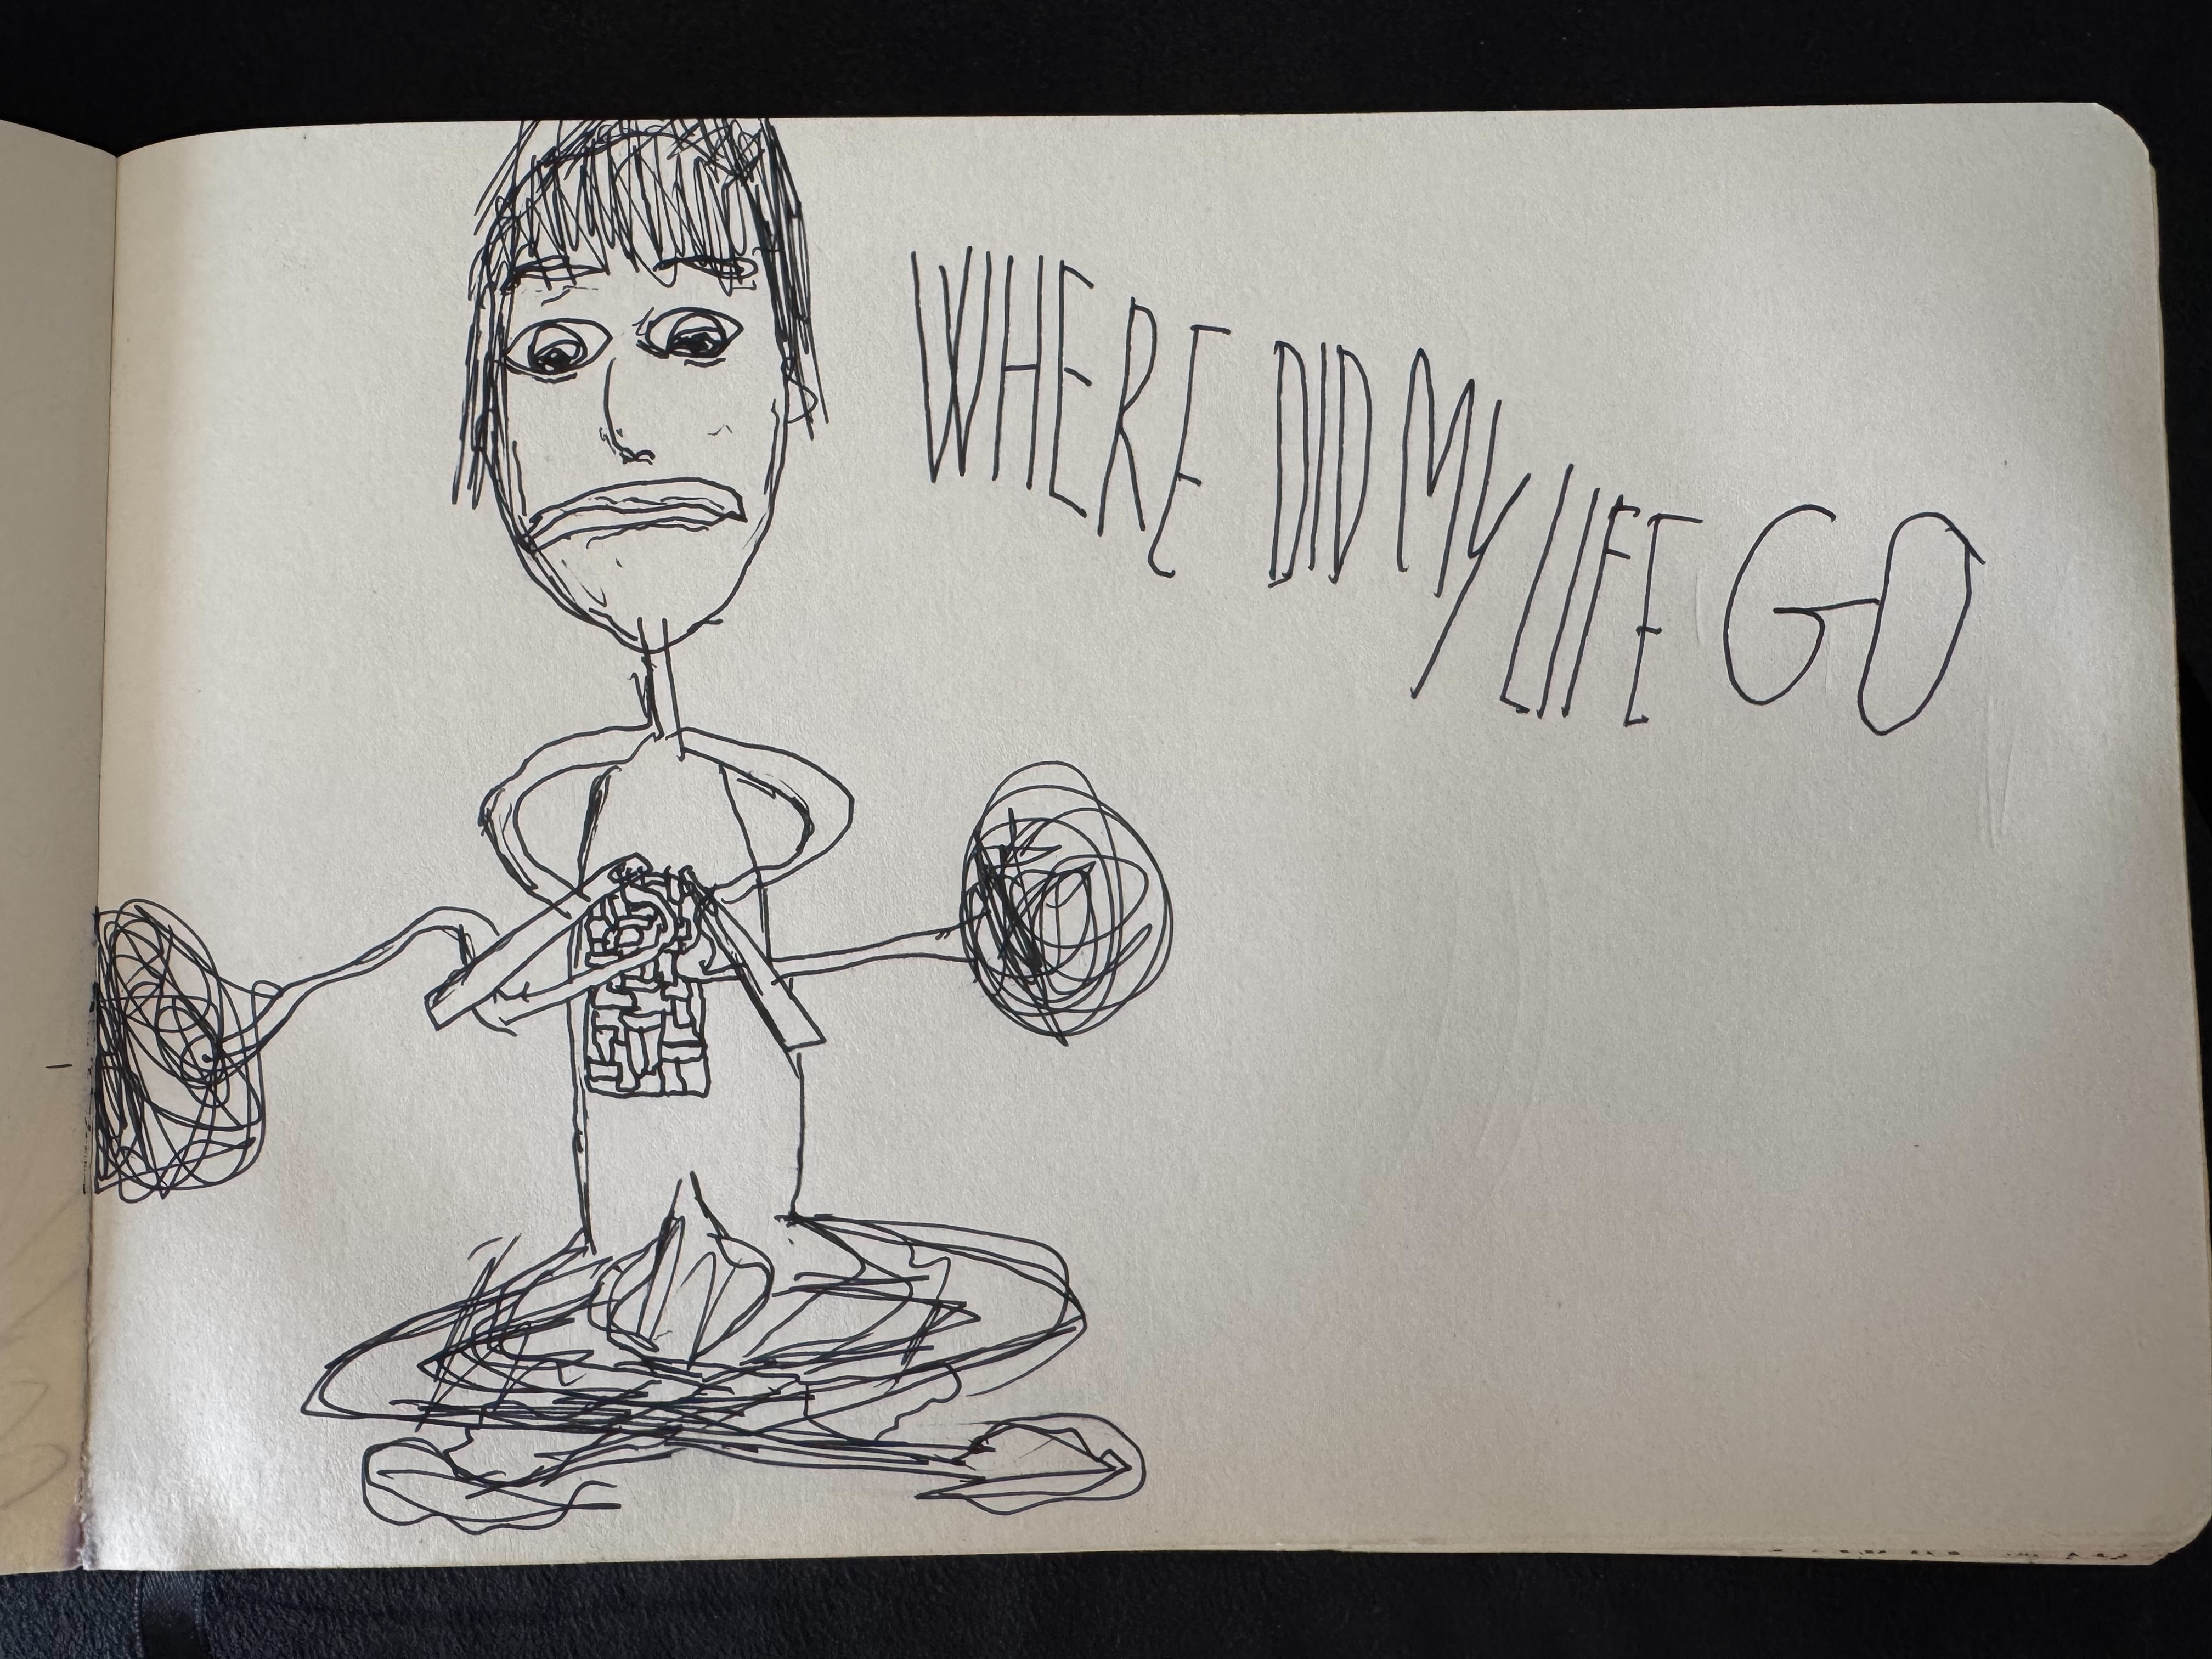 WHERE DID MY LIFE GO